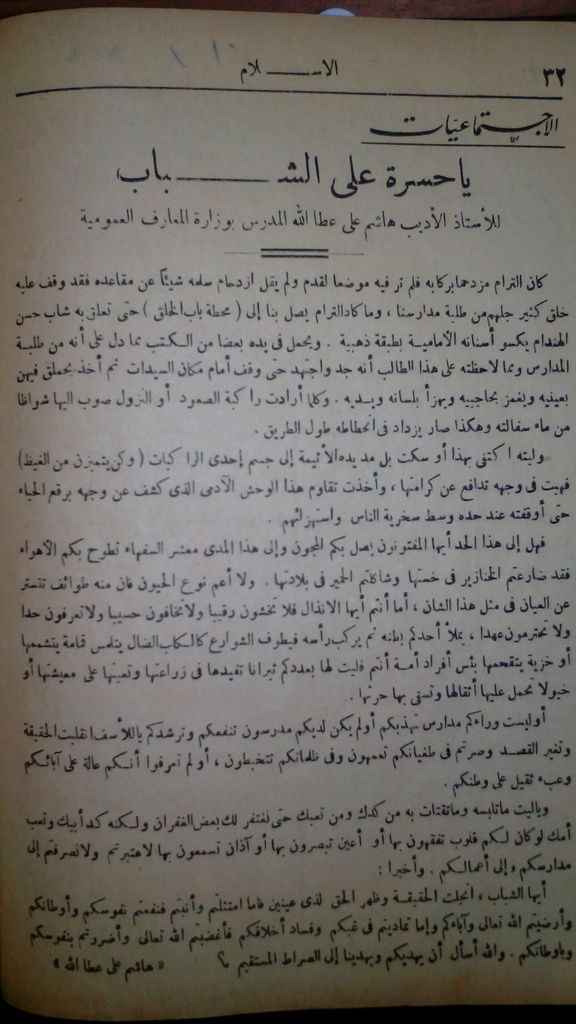 ٣٢
الاســـلام
الاجتماعيات
يا حسرة على الشـــباب
للأستاذ الأديب هاشم على عطا الله المدرس بوزارة المعارف العمومية
كان الترام مزدحما بركابه فلم تر فيه موضعا لقدم ولم يقل ازدحام سلمه شيئاً عن مقاعده فقد وقف عليه
خلق كثير جلهم من طلبة مدارسنا ، وما كاد الترام يصل بنا إلى ( محطة باب الخلق ) حتى تعلق به شاب حسن
الهندام يكسو أسنانه الأمامية بطبقة ذهبية . ويحمل فى يده بعضا من الكتب مما دل على أنه من طلبة
المدارس ومما لاحظته على هذا الطالب أنه جد واجتهد حتى وقف أمام مكان السيدات ثم أخذ يحملق فيهن
بعينيه ويغمز بحاجبيه ويهزأ بلسانه وبيديه . وكلما أرادت راكبة الصعود أو النزول صوب اليها شواظا
من ماء سفالته وهكذا صار يزداد فى انحطاطه طول الطريق .
وليته اكتفى بهذا أو سكت بل مد يده الأثيمة إلى جسم إحدى الراكبات ( وكن يتميزن من الغيظ )
فهبت فى وجهه تدافع عن كرامتها ، وأخذت تقاوم هذا الوحش الآدمى الذى كشف عن وجهه برقع الحياء
حتى أوقفته عند حده وسط سخرية الناس واستهزائهم .
فهل إلى هذا الحد أيها المفتونون يصل بكم المجون وإلى هذا المدى معشر السفهاء تطوح بكم الأهواء
فقد ضارعتم الخنازير فى خستها وشاكلتم الحمير فى بلادتها . ولا أعم نوع الحيوان فان منه طوائف تتستر
عن العيان فى مثل هذا الشان ، أما أنتم أيها الانذال فلا تخشون رقيبا ولا تخافون حسيبا ولا تعرفون حدا
ولا تحترمون عهدا ، يملأ أحدكم بطنه ثم يركب رأسه فيطوف الشوارع كالكلب الضال يتلمس قمامة يتشممها
أو خربة يتقحمها بئس أفراد أمة أنتم فليت لها بعددكم ثيرانا تفيدها فى زراعتها وتعينها على معيشتها أو
خيولا تحمل عليها أثقالها وتسقى بها حرثها .
أوليست وراءكم مدارس تهذبكم أولم يكن لديكم مدرسون تنفعكم وترشدكم ياللأسف انقلبت الحقيقة
وتغير القصد وصرتم فى طغيانكم تعمهون وفى ظلماتكم تتخبطون ، أولم تعرفوا أنكم عالة على آبائكم
وعبء ثقيل على وطنكم .
وياليت ما تلبسه وما تقتات به من كدك ومن تعبك حتى نغتفر لك بعض الغفران ولكنه كد أبيك وتعب
أمك لو كان لكم قلوب تفقهون بها أو أعين تبصرون بها أو آذان تسمعون بها لاعتبرتم ولانصرفتم إلى
مدارسكم وإلى أعمالكم . وأخيرا :
أيها الشباب ، انجلت الحقيقة وظهر الحق لذى عينين فاما امتثلتم وأنبتم فنفعتم نفوسكم وأوطانكم
وأرضيتم الله تعالى وآباءكم وإما تماديتم فى غيكم وفساد أخلاقكم فأغضبتم الله تعالى وأضررتم بنفوسكم
وبأوطانكم . والله أسأل أن يهديكم ويهدينا إلى الصراط المستقيم ؟ « هاشم على عطا الله »